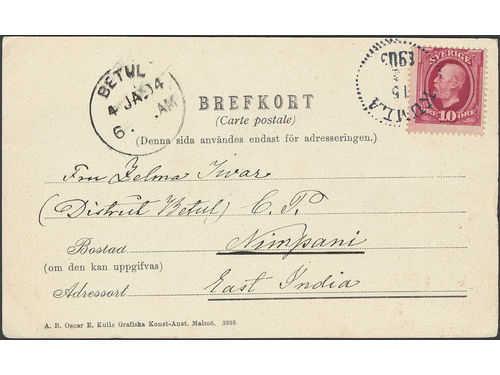 SVERIGE
10 ÖRE
KUMLA
15
1903
BETUL
4 JA 04
6. AM
BREFKORT
(Carte postale)
(Denna sida användes endast för adresseringen.)
Fru Zelma Ivar
(Distrikt Betul) C. P.
Bostad Nimpani
(om den kan uppgifvas)
Adressort East India
A. B. Oscar E. Kulls Grafiska Konst-Anst. Malmö. 3995